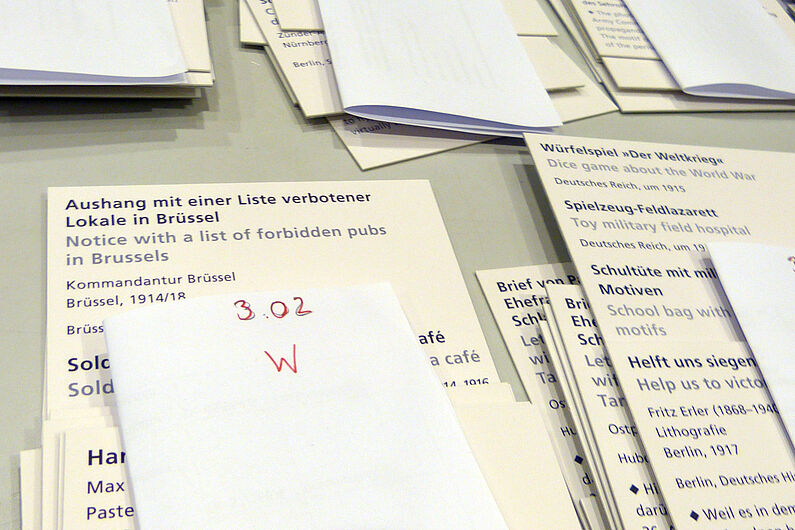 Zünder
Nürnberg
Berlin, S
virtually
des Sehro
The pho
Army Com
propagand
The motif
of the peri
Würfelspiel »Der Weltkrieg«
Dice game about the World War
Deutsches Reich, um 1915
Spielzeug-Feldlazarett
Toy military field hospital
Deutsches Reich, um 19
Schultüte mit mil
Motiven
School bag with
motifs
Helft uns siegen
Help us to victo
Fritz Erler (1868–1940
Lithografie
Berlin, 1917
Berlin, Deutsches Hi
◆ Weil es in dem
Aushang mit einer Liste verbotener
Lokale in Brüssel
Notice with a list of forbidden pubs
in Brussels
Kommandantur Brüssel
Brüssel, 1914/18
Brüss
3.02
W
Sold
afé
Sold
a café
14, 1916
Har
Max
Paste
Brief von P
Ehefra
Schl
Let
wi
Ta
Os
Hu
Bri
Ehe
Sch
Lett
wif
Tar
Ostp
Hube
◆ Hi
darü